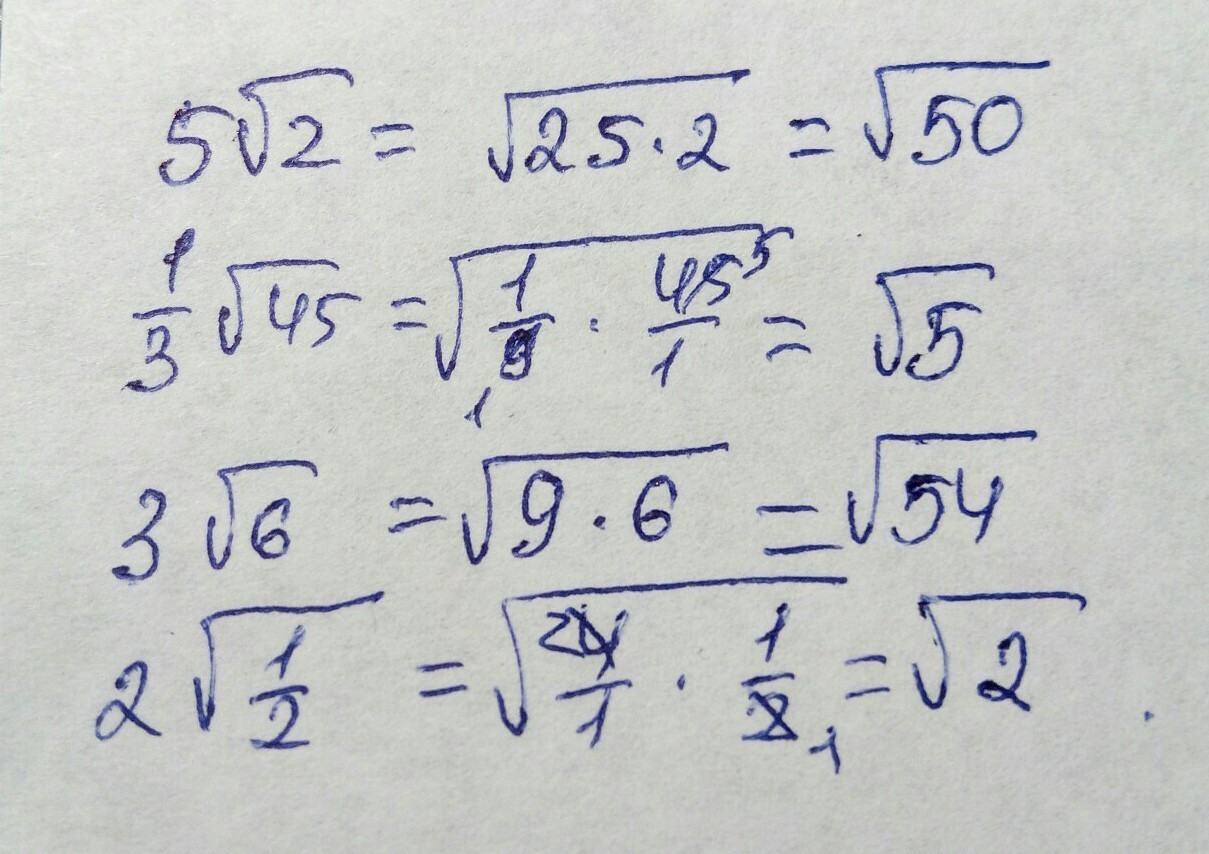 5√2 = √25·2 = √50
1/3 √45 = √1/9 · 45/1 5 1 = √5
3√6 = √9·6 = √54
2√1/2 = √2 4/1 · 1/2 1 = √2 .